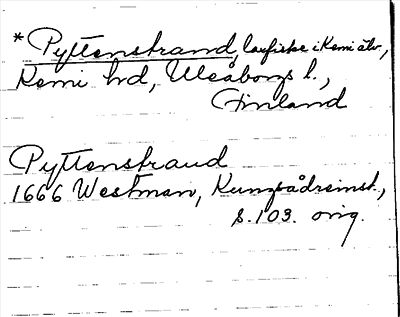 * Pyttenstrand, laxfiske i Kemi älv,
Kemi hd, Uleåborgs l.,
Finland
Pyttenstrand
1666 Westman, Kungsådreinst.,
s. 103. orig.